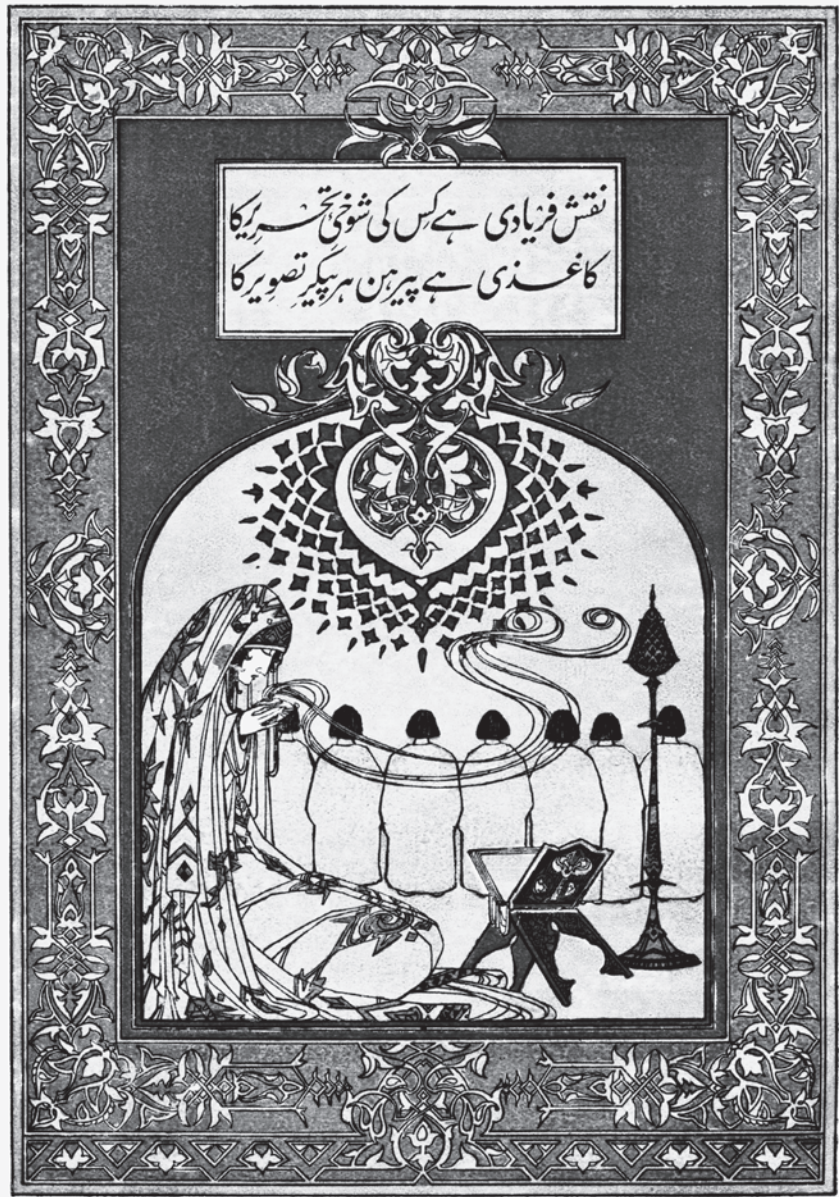 نقش فریادی ہے کِس کی شوخیِ تحریر کا
کاغذی ہے پیرہن ہر پیکرِ تصویر کا